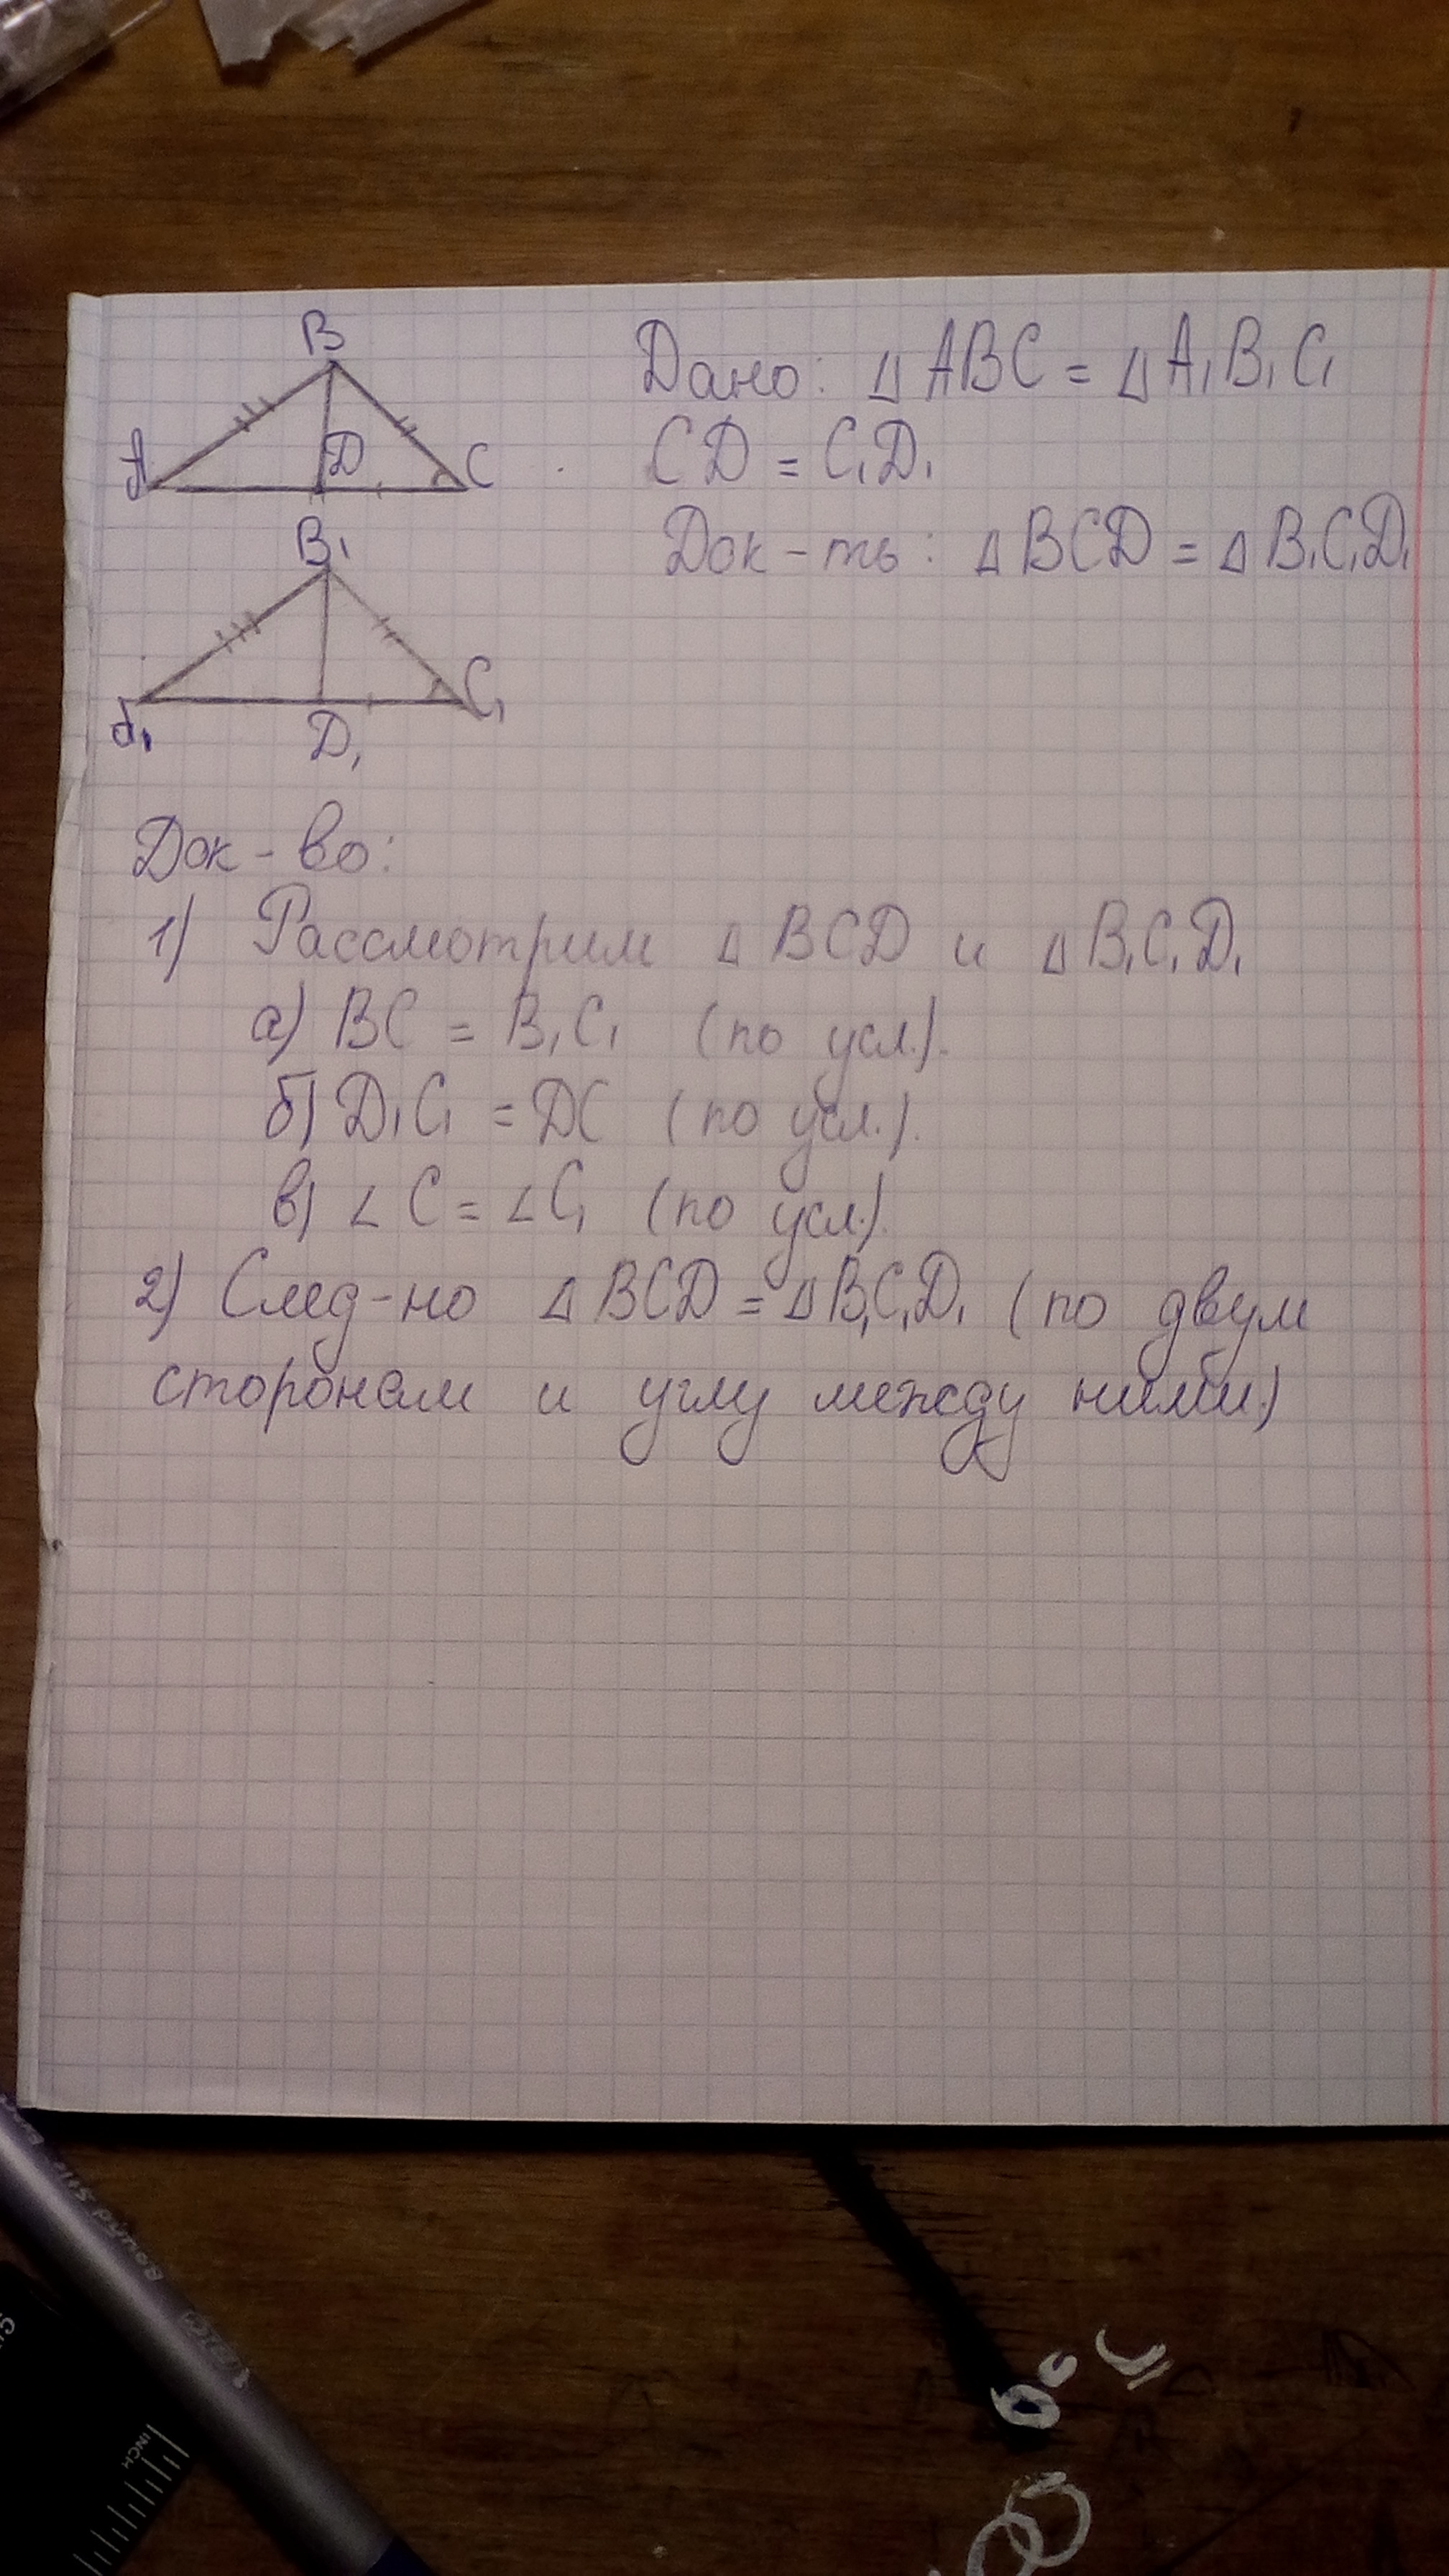 B
Дано: △ABC = △A₁B₁C₁
A D C
CD = C₁D₁
B₁
Док-ть: △BCD = △B₁C₁D₁
A₁ D₁ C₁
Док-во:
1) Рассмотрим △BCD и △B₁C₁D₁
а) BC = B₁C₁ (по усл.).
б) D₁C₁ = DC (по усл.).
в) ∠C = ∠C₁ (по усл.).
2) След-но △BCD = △B₁C₁D₁ (по двум
сторонам и углу между ними.)
INCH